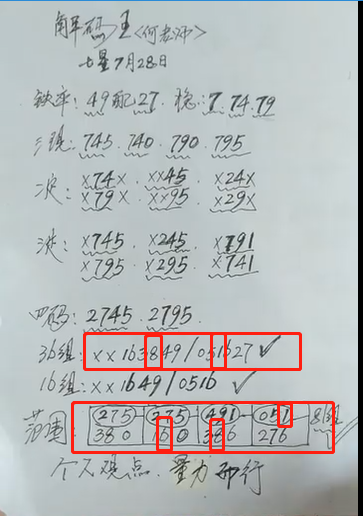 南平码王<何老师>
七星7月28日
铁率:49配27.稳:7.74.79
三现:745.740.790.795
二定:X74X.XX45.X24X
X79X.XX95.X29X
三定:X745.X245.X791
X795.X295.X741
四码:2745.2795.
36组:XX163849/051627✓
16组:XX1649/0516✓
范围:275-275-491-051 8组
380 160 386 276
个人观点.量力而行